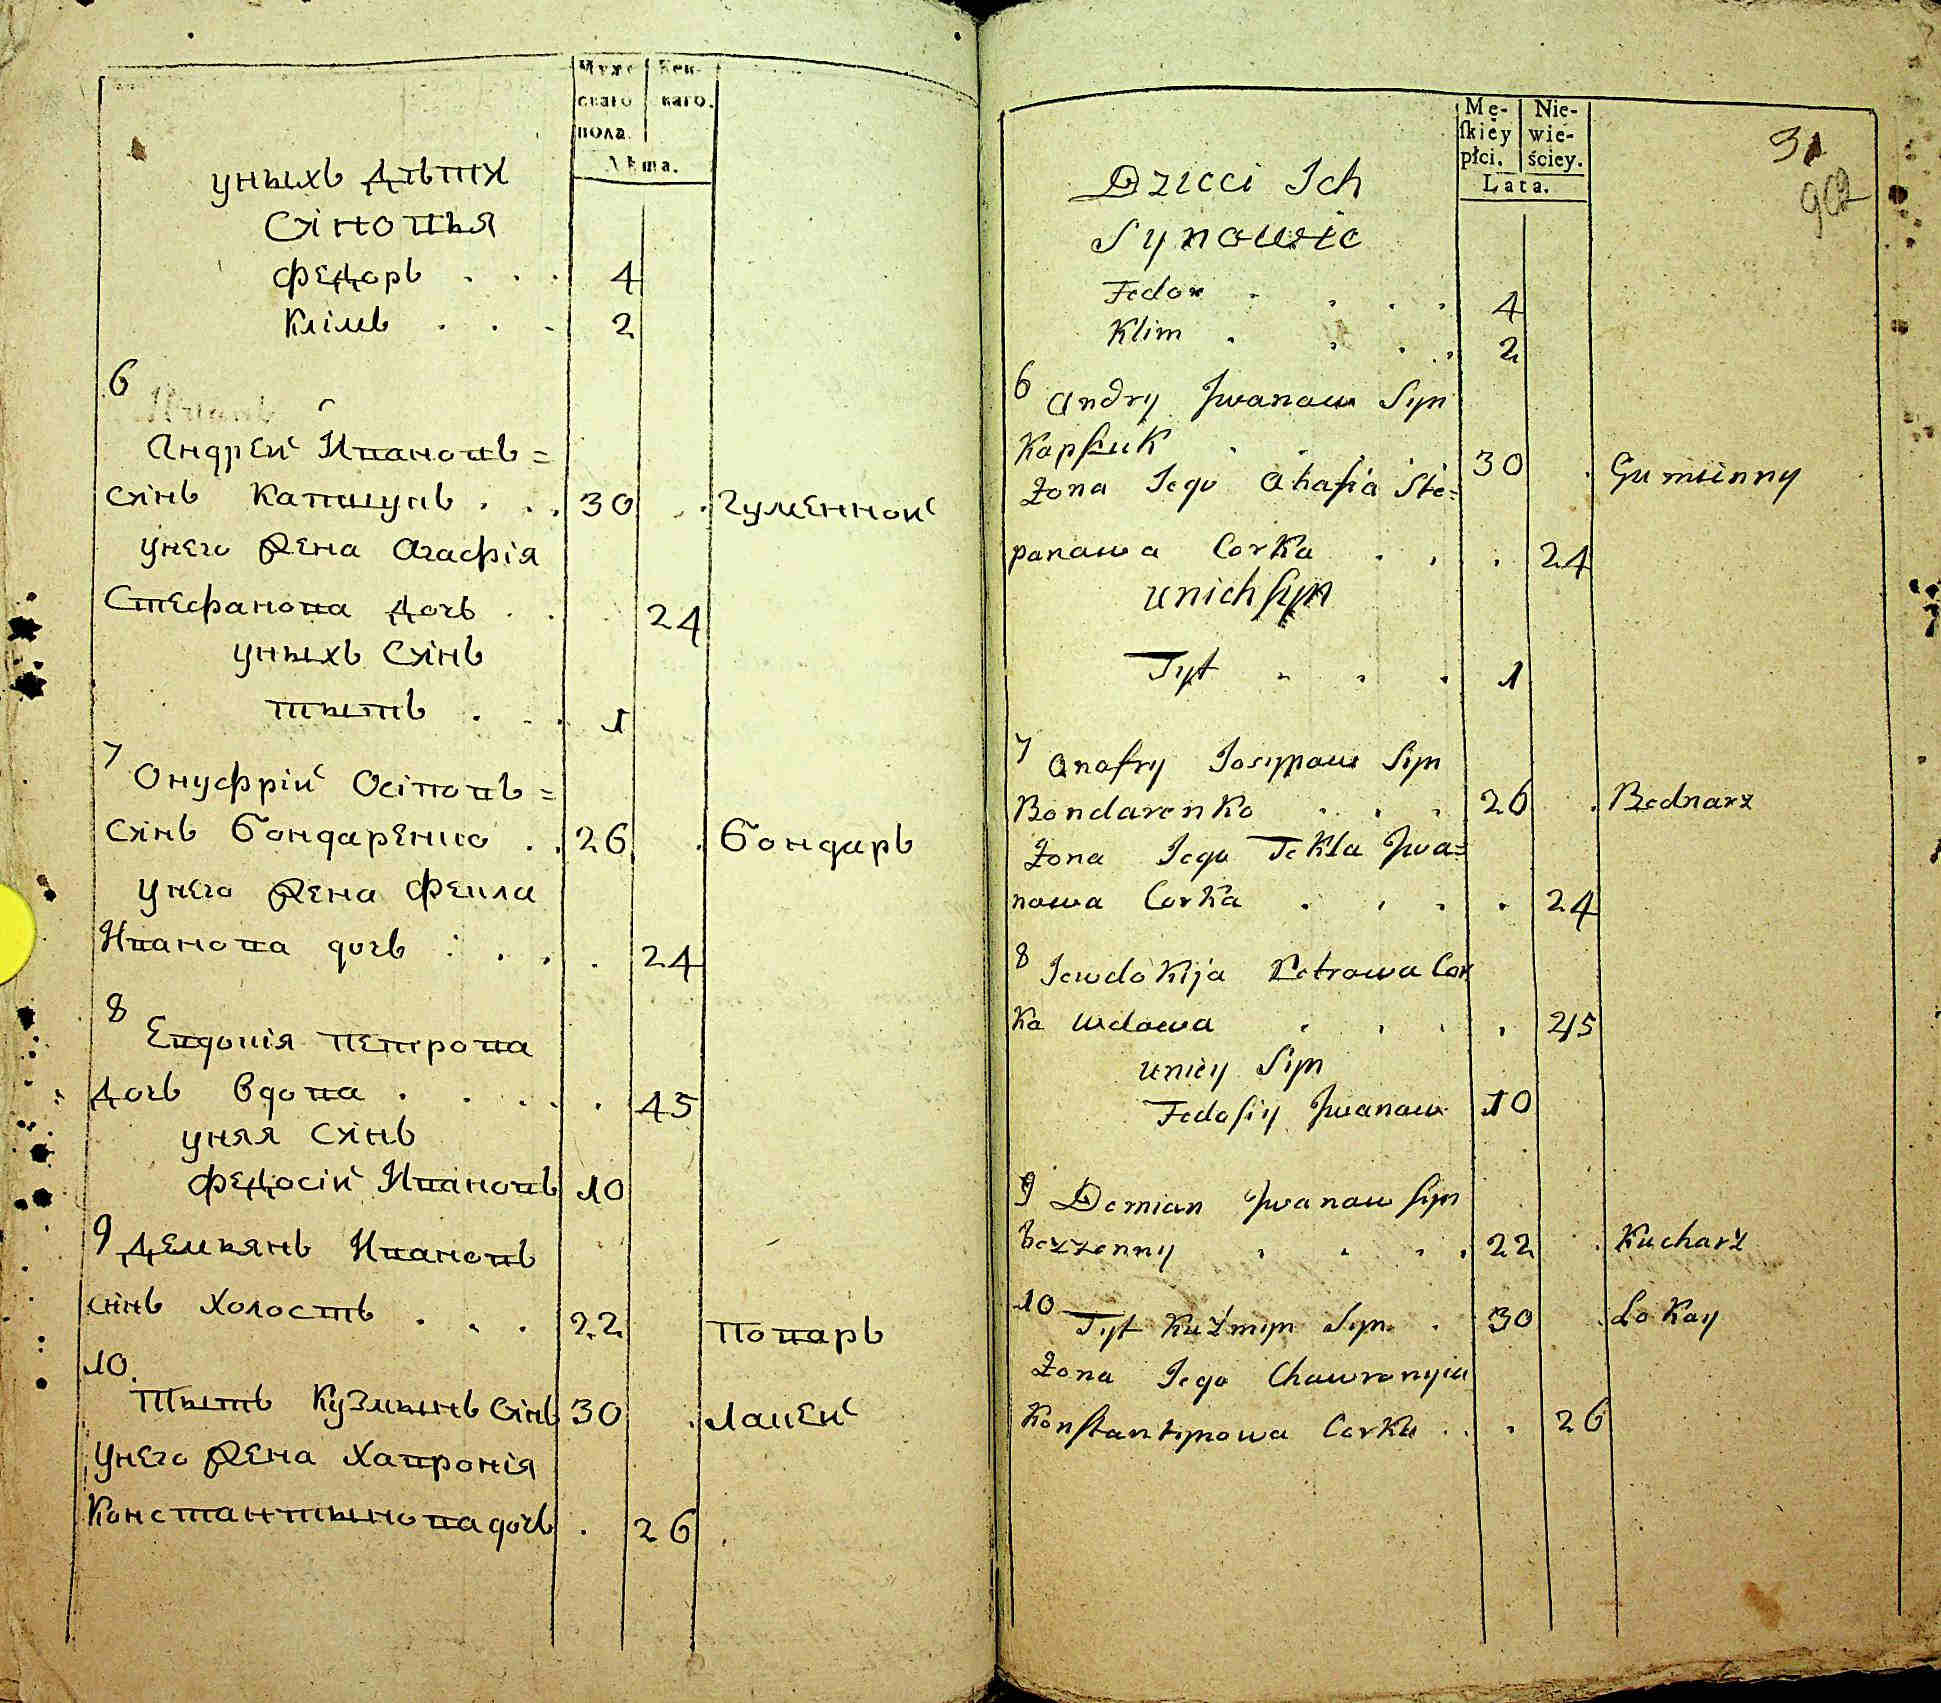 Муже
скаго
пола.
Жен-
каго.
Лѣта.
уныхъ Дѣти
Сіновья
Федоръ . . . 4
Клімъ . . . 2
6
Андрей Ивановъ =
сінъ Капшукъ . . . 30 . Гуменной
унего Жена Агафія
Стефанова Дочь . . . 24
уныхъ Сінъ
Тытъ . . . 1
7
Онуфрій Осіповъ =
сінъ Бондаренко . . 26 . Бондарь
унего Жена Фекла
Иванова дочь . . . . 24
8
Евдокія Петрова
Дочь Вдова . . . . . 45
уняя Сінъ
Федосій Ивановъ 10
9 Демьянъ Ивановъ
сінъ Холостъ . . . 22 Поваръ
10.
Тытъ Кузмынъ Сінъ 30 . Лакей
унего Жена Хавронія
Константынова дочь . 26 .
Mę-
ſkiey
płci.
Nie-
wie-
ściey.
Lata.
31
Dzieci Ich
Synowie
Fedor . . . . 4
Klim . . . . 2
6 Andry Jwanaw Syn
Kapſzuk . . . . 30 . Gumienny
Żona Jego Ahafia Ste=
panawa Corka . . . 24
unich ſyn
Tyt . . . 1
7 Anafry Josypaw Syn
Bondarenko . . . 26 . Bednarz
Żona Jego Tekla Jwa=
nowa Corka . . . . 24
8 Jewdokija Petrawa Cor
ka wdowa . . . . 45
uniey Syn
Fedosiy Jwanaw 10
9 Demian Jwanaw ſyn
bezzenny . . . . 22 . Kucharz
10 Tyt Kuźmyn Syn . 30 . Lokay
Żona Jego Chawronyia
Konſtantynowa Corka . . . 26